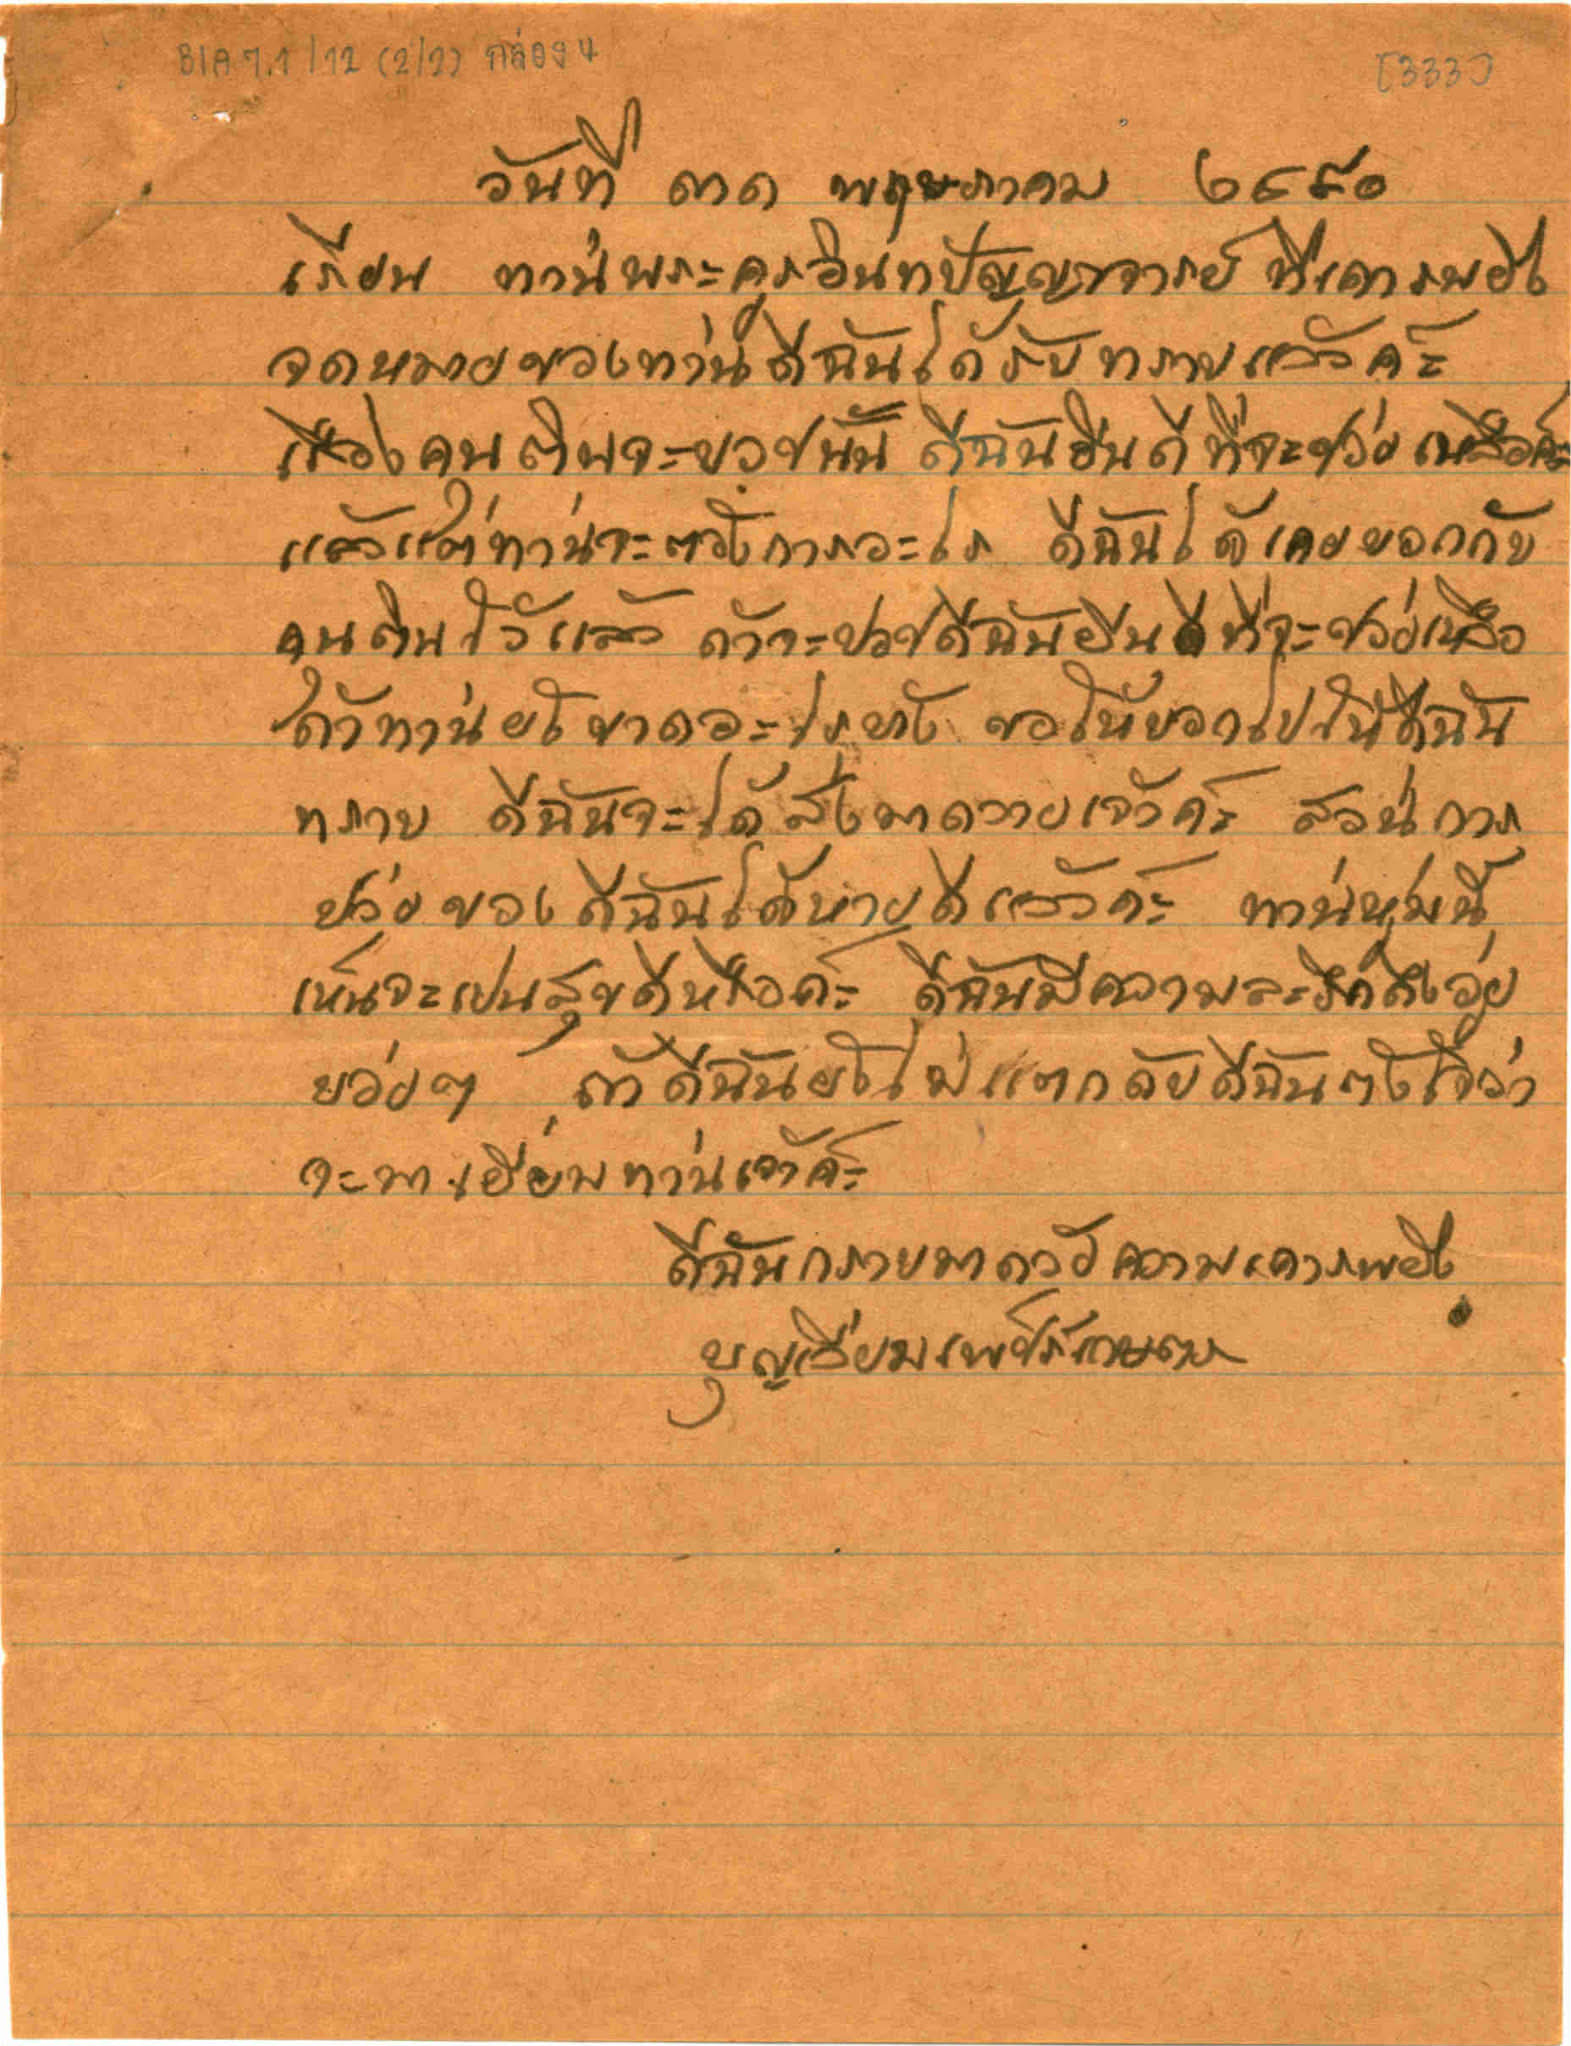 BIA 7.1/12 (2/2) กล่อง 4
[333]
วันที่ ๓๑ พฤษภาคม ๒๔๙๐
เรียน ท่านพระครูอินทปัญญาจารย์ ที่เคารพยิ่ง
จดหมายของท่านดิฉันได้รับทราบแล้วค่ะ
เรื่องคนตินจะบวชนั้น ดีฉันยินดีที่จะช่วยเหลือค่ะ
แล้วแต่ท่านจะต้องการอะไร ดีฉันได้เคยบอกกับ
คนตินไว้แล้ว ถ้าจะบวชดีฉันยินดีที่จะช่วยเหลือ
ถ้าท่านยังขาดอะไรบ้าง ขอให้บอกไปให้ดีฉัน
ทราบ ดีฉันจะได้ส่งมาถวายเจ้าค่ะ ส่วนการ
ป่วยของดีฉันได้หายดีแล้วค่ะ ท่านหมู่นี้
เห็นจะเป็นสุขดีหรือค่ะ ดีฉันมีความละรึกถึงอยู่
บ่อยๆ ถ้าดีฉันยังไม่แตกดับดีฉันตั้งใจว่า
จะมาเยี่ยมท่านเจ้าค่ะ
ดีฉันกราบมาด้วยความเคารพยิ่ง
บุญเอี่ยม